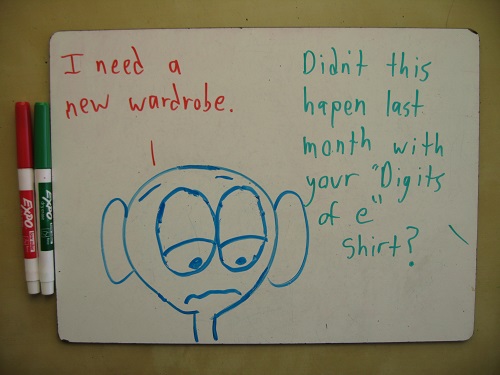 I need a
new wardrobe.
Didn't this
hapen last
month with
your "Digits
of e"
shirt?
EXPO
EXPO